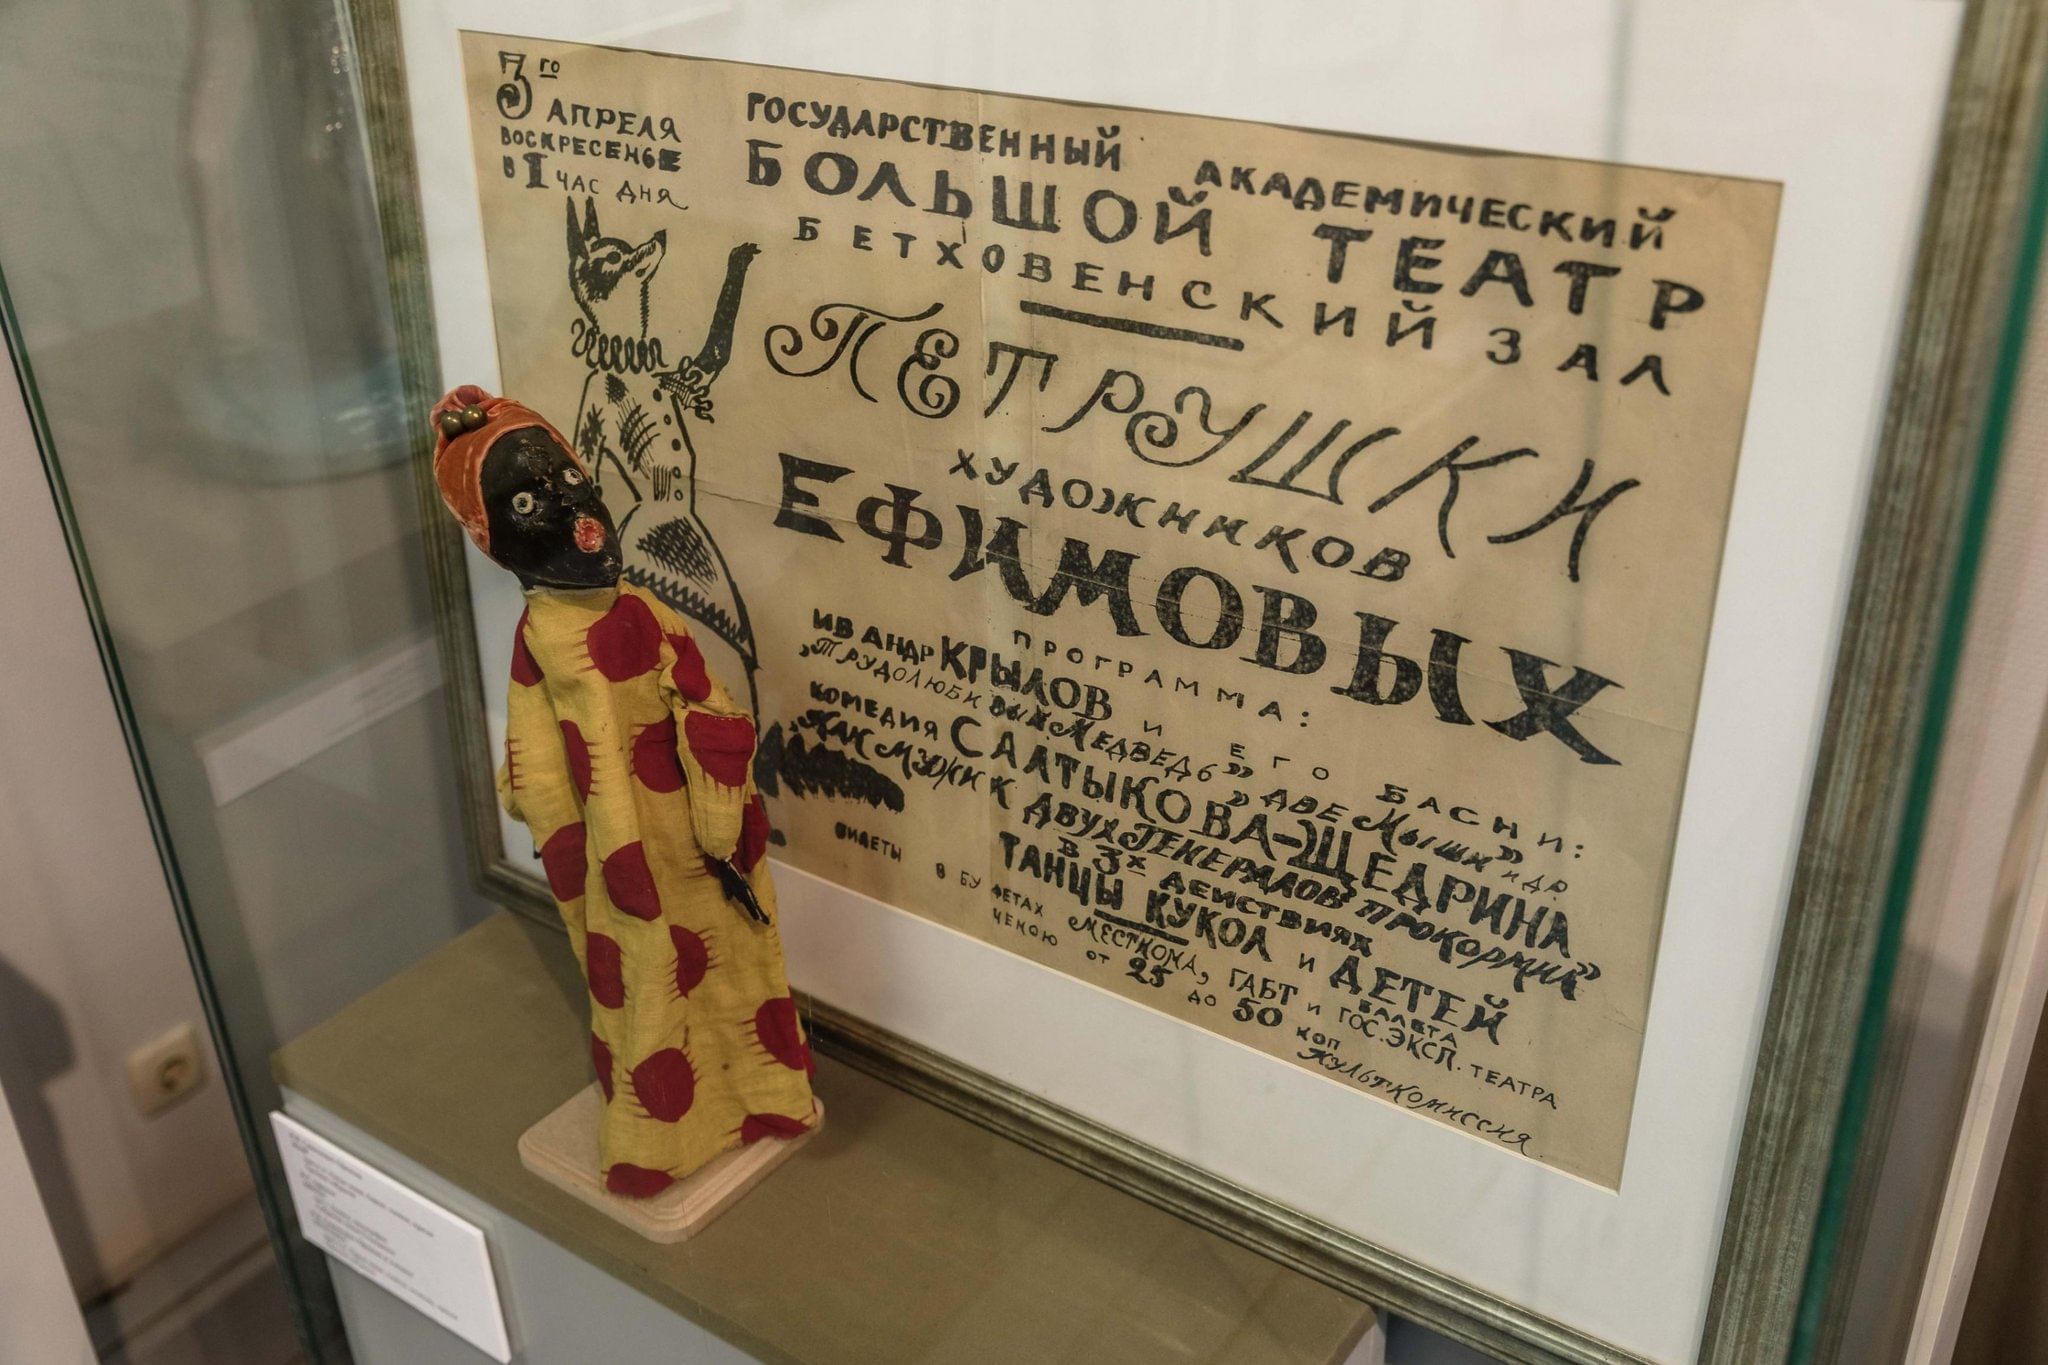 3го
АПРЕЛЯ
ВОСКРЕСЕНЬЕ
В 1 ЧАС ДНЯ
ГОСУДАРСТВЕННЫЙ АКАДЕМИЧЕСКИЙ
БОЛЬШОЙ ТЕАТР
БЕТХОВЕНСКИЙ ЗАЛ
ПЕТРУШКИ
ХУДОЖНИКОВ
ЕФИМОВЫХ
ПРОГРАММА:
ИВ АНДР КРЫЛОВ И ЕГО БАСНИ:
„ТРУДОЛЮБИВЫЙ МЕДВЕДЬ” „ДВЕ МЫШИ” и др
КОМЕДИЯ САЛТЫКОВА-ЩЕДРИНА
„КАК МУЖИК ДВУХ ГЕНЕРАЛОВ ПРОКОРМИЛ”
В 3х ДЕЙСТВИЯХ
ТАНЦЫ КУКОЛ И ДЕТЕЙ
БИЛЕТЫ В БУФЕТАХ МЕСТКОМА, ГАБТ И ГОС. ЭКСП. ТЕАТРА
БАЛЕТА
ЦЕНОЮ ОТ 25 ДО 50 КОП
КУЛЬТКОМИССИЯ